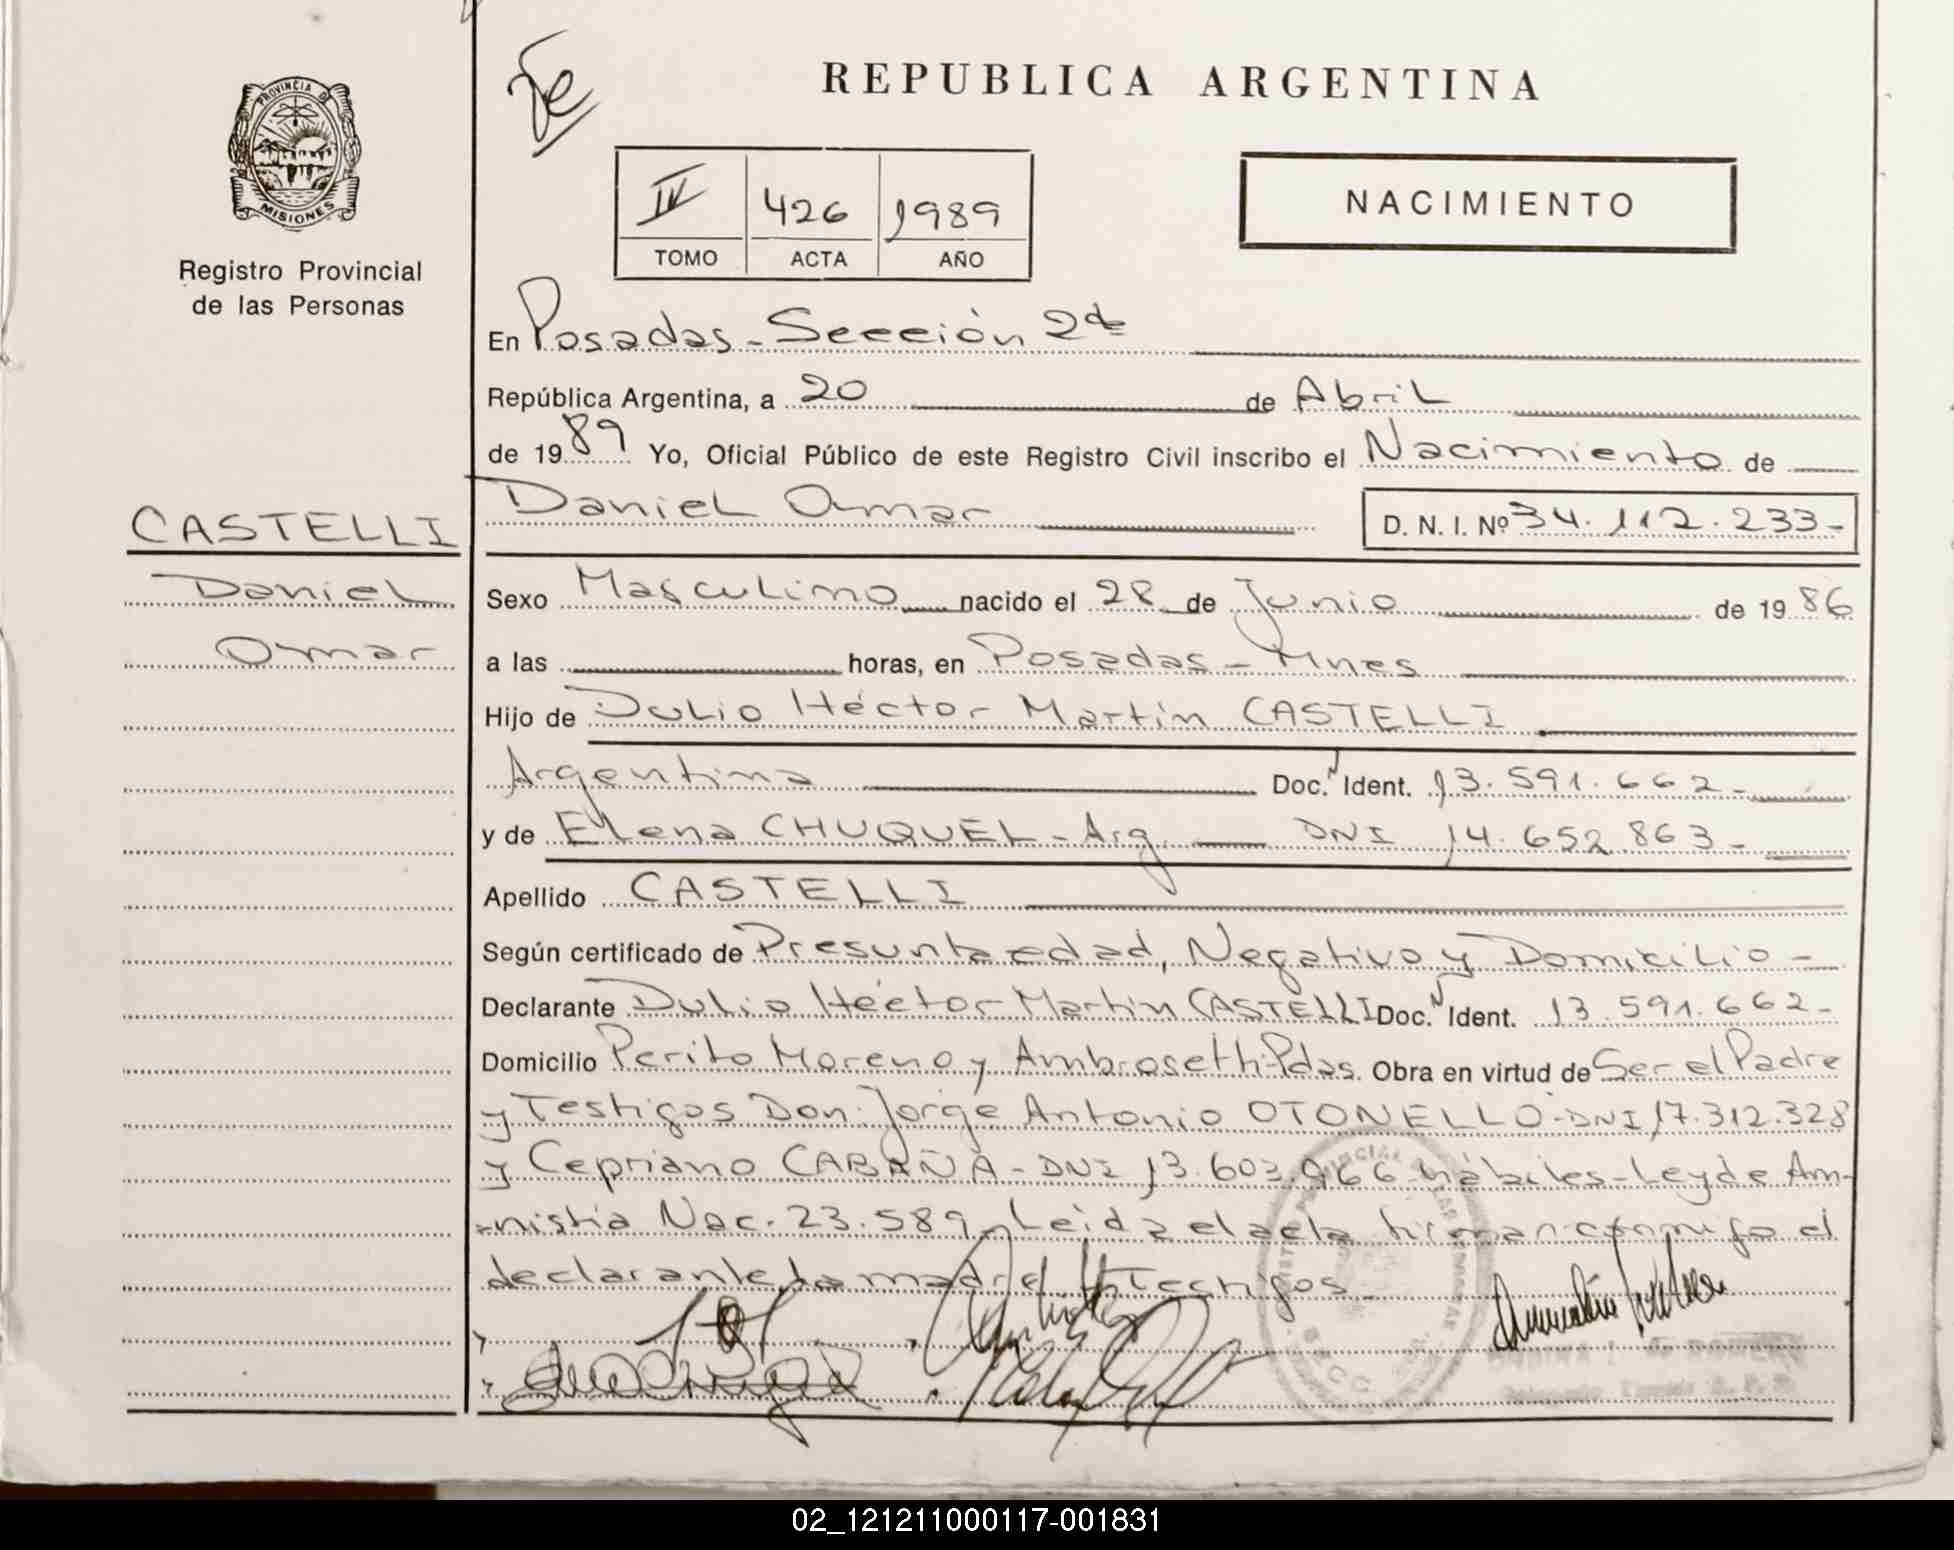 PROVINCIA D
MISIONES
Registro Provincial
de las Personas
REPUBLICA ARGENTINA
IV 426 1989
TOMO ACTA AÑO
NACIMIENTO
En Posadas - Sección 2da
República Argentina, a 20 de Abril
de 1989 Yo, Oficial Público de este Registro Civil inscribo el Nacimiento de
Daniel Omar D. N. I. Nº 34.112.233-
CASTELLI
Daniel
Omar
Sexo Masculino nacido el 28 de Junio de 1986
a las horas, en Posadas - Mnes
Hijo de Dulio Héctor Martín CASTELLI
Argentina Doc. N Ident. 13.591.662-
y de Elena CHUQUEL - Arg. DNI 14.652.863-
Apellido CASTELLI
Según certificado de Presunta edad, Negativo y Domicilio -
Declarante Dulio Héctor Martín CASTELLI Doc. N Ident. 13.591.662-
Domicilio Perito Moreno y Ambrosetti-Pdas. Obra en virtud de Ser el Padre
y Testigos Don: Jorge Antonio OTONELLO-DNI 17.312.328
y Cepriano CABAÑA - DNI 13.603.966 hábiles - Ley de Am-
-nistía Nac. 23.589 - Leída el acta firman conmigo el
declarante, la madre y Testigos
02_121211000117-001831